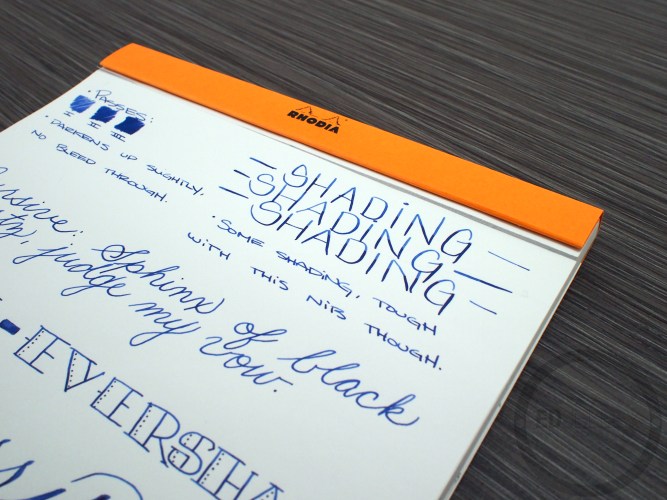 RHODIA
• PASSES:
I II III
• DARKENS UP SLIGHTLY.
NO BLEED THROUGH.
— SHADING —
— SHADING —
— SHADING —
• SOME SHADING, TOUGH
WITH THIS NIB THOUGH.
Sphinx of black
judge my vow.
EVERSHA